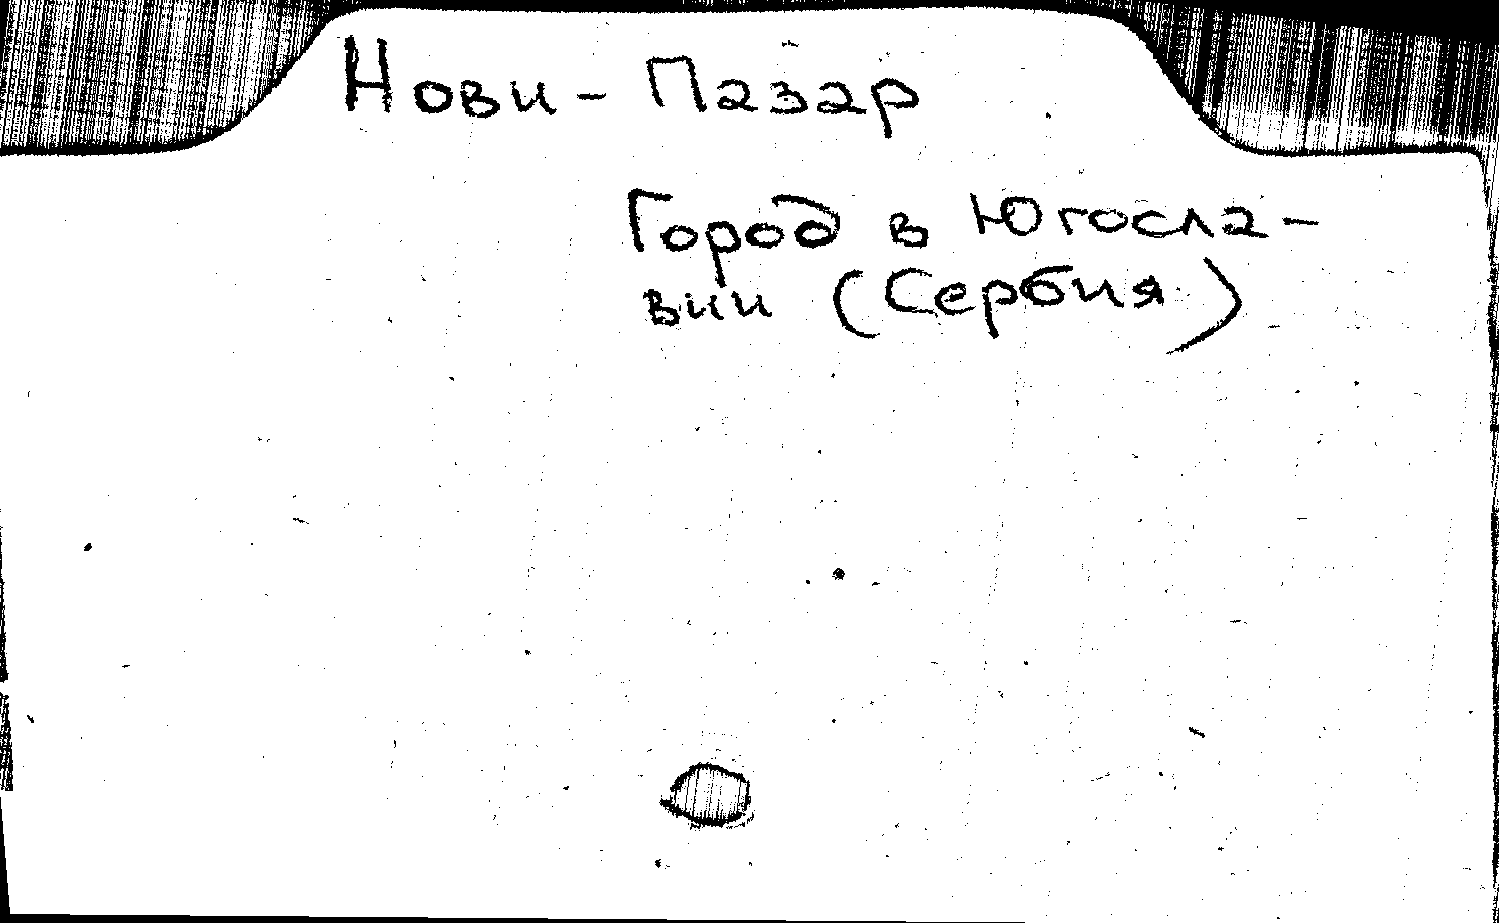 Нови-Пазар
Город в Югосла-
вии (Сербия)